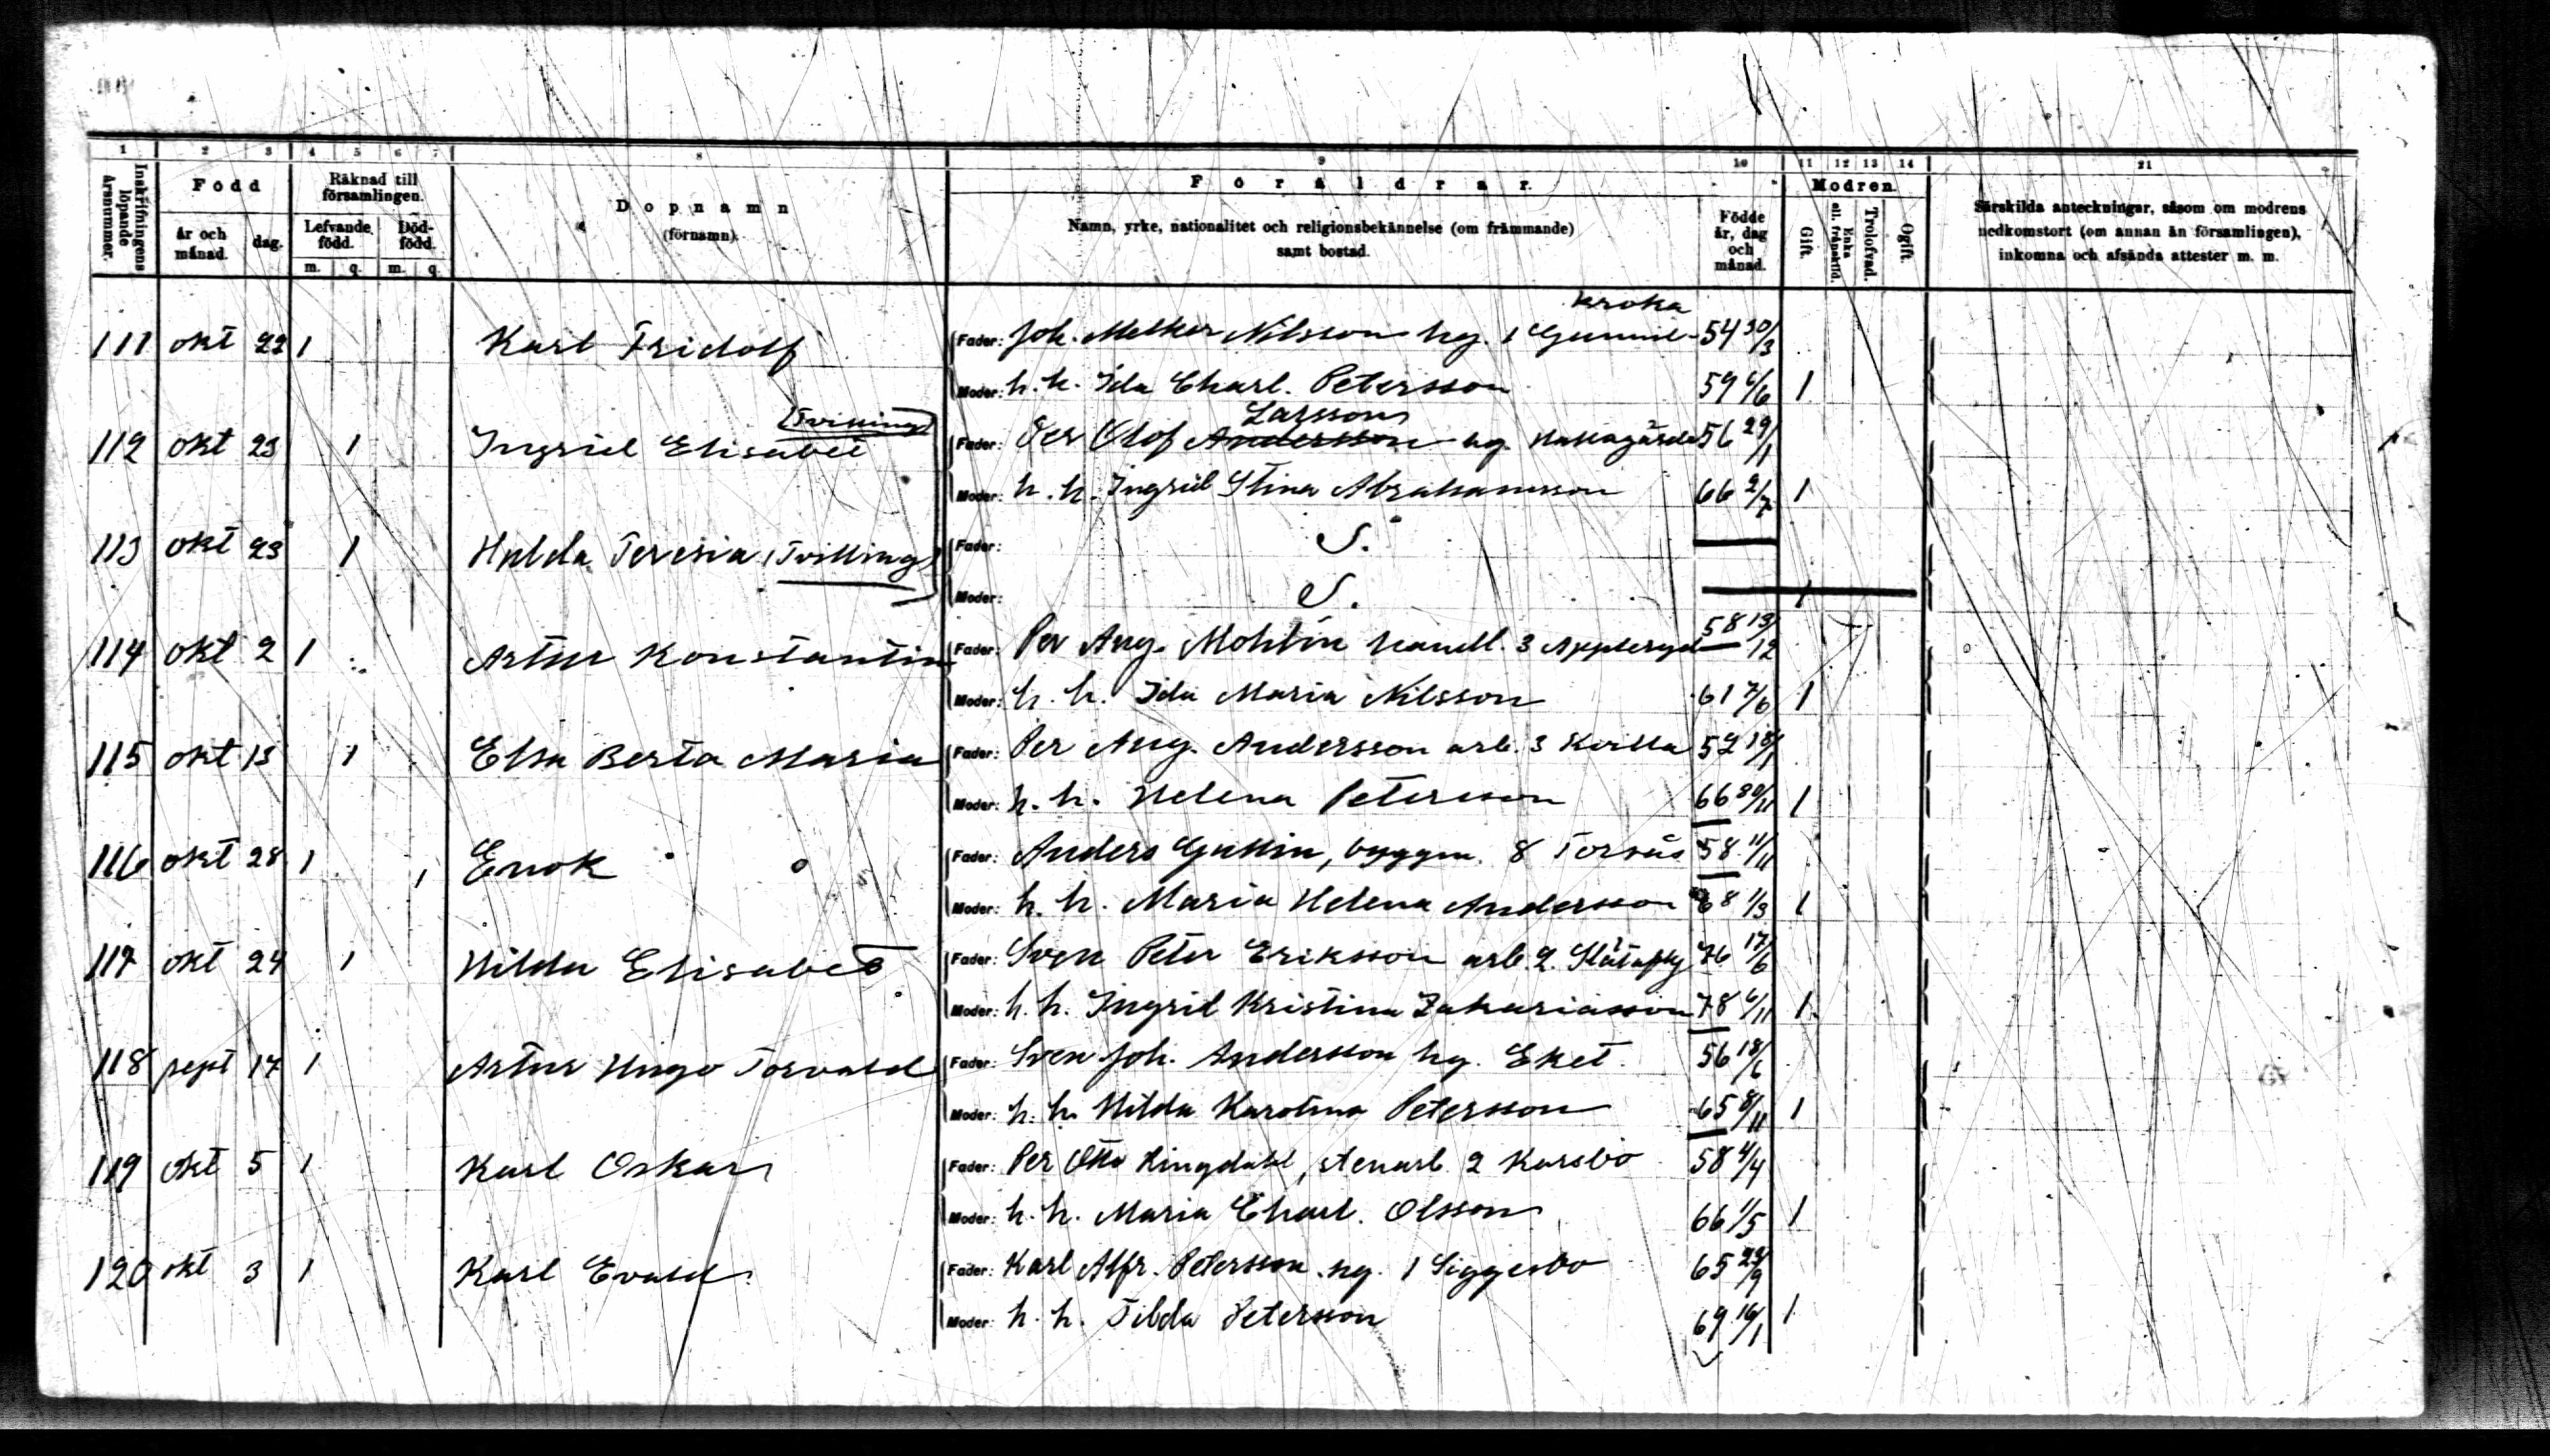 1 2 3 4 5 6 7 8 9 10 11 12 13 14 21
Inskrifningens löpande Årsnummer.
Född
år och månad.
dag.
Räknad till församlingen.
Lefvande född.
Död-född.
m. q. m. q.
Dopnamn
(förnamn).
Föräldrar.
Namn, yrke, nationalitet och religionsbekännelse (om främmande)
samt bostad.
Födde år, dag och månad.
Modren.
Gift.
Enka ell. frånskild.
Trolofvad.
Ogift.
Särskilda anteckningar, såsom om modrens
nedkomstort (om annan än församlingen),
inkomna och afsända attester m. m.
kroka
111 okt 22 1 Karl Fridolf Fader: Joh. Melker Nilsson hg. 1 Gumme- 54 30/3
Moder: h. h. Ida Charl. Petersson 59 6/6 1
(Tvilling) Larsson
112 okt 23 1 Ingrid Elisabet Fader: Per Olof Andersson hg. 56 29/1
Moder: h. h. Ingrid Stina Abrahamsson 66 2/7 1
113 okt 23 1 Hulda Teresia (Tvilling) Fader: S.
Moder: S. 1
114 okt 2 1 Artur Konstantin Fader: Per Aug. Mohlin handl. 3 Appleryd 58 13/12
Moder: h. h. Ida Maria Nilsson 61 7/6 1
115 okt 13 1 Elsa Berta Maria Fader: Per Aug. Andersson arb. 3 52 18/1
Moder: h. h. Helena Petersson 66 30/11 1
116 okt 28 1 Enok Fader: Anders Gullin, byggm. 8 Torsås 58 11/11
Moder: h. h. Maria Helena Andersson 68 1/3 1
117 okt 24 1 Hilda Elisabet Fader: Sven Peter Eriksson arb. 2. 76 17/6
Moder: h. h. Ingrid Kristina Zakariasson 78 6/11 1
118 sept 17 1 Artur Hugo Torvald Fader: Sven Joh. Andersson hg. Eket 56 18/6
Moder: h. h. Hilda Karolina Petersson 65 8/11 1
119 okt 5 1 Karl Oskar Fader: Per Otto Ringdahl, stenarb. 2 Karsbo 58 4/4
Moder: h. h. Maria Charl. Olsson 66 1/5 1
120 okt 3 1 Karl Evald Fader: Karl Alfr. Petersson hg. 1 Siggesbo 65 29/9
Moder: h. h. Tilda Petersson 69 16/1 1